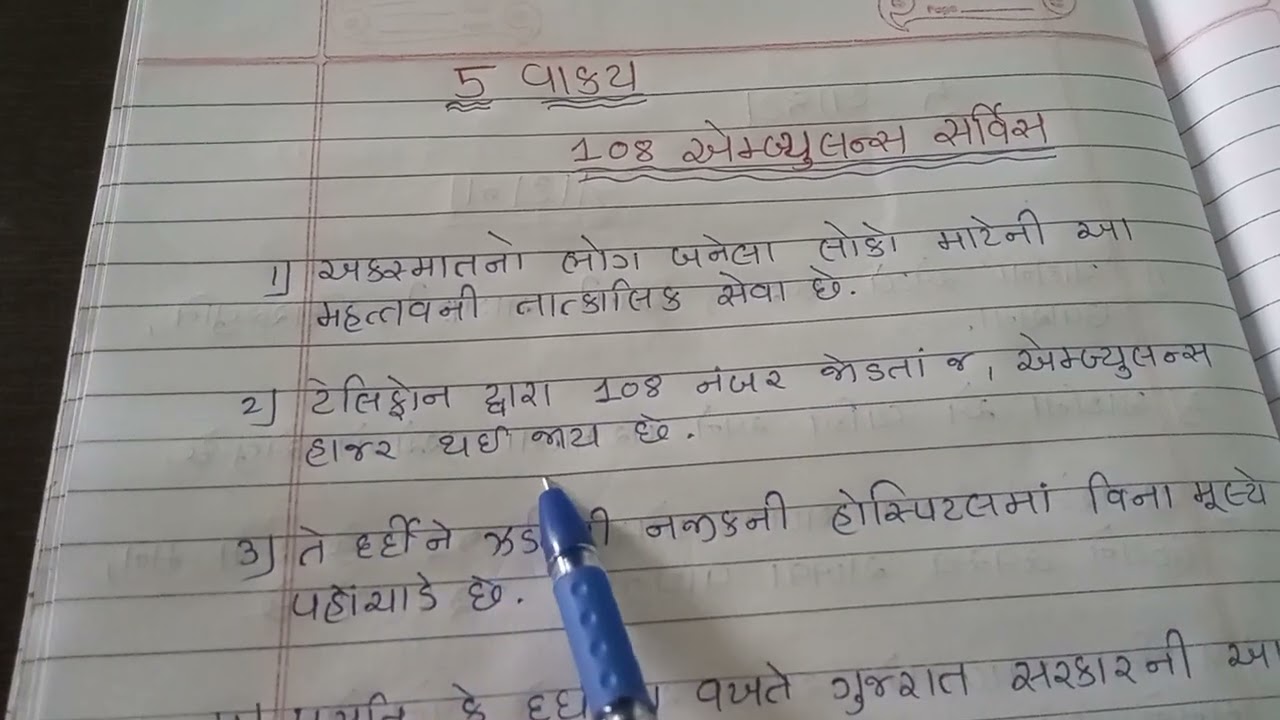 Page
5 વાક્ય
108 એમ્બ્યુલન્સ સર્વિસ
1) અકસ્માતનો ભોગ બનેલા લોકો માટેની આ
મહત્ત્વની તાત્કાલિક સેવા છે.
2) ટેલિફોન દ્વારા 108 નંબર જોડતાં જ, એમ્બ્યુલન્સ
હાજર થઈ જાય છે.
3) તે દર્દીને નજીકની હોસ્પિટલમાં વિના મૂલ્યે
પહોંચાડે છે.
કે વખતે ગુજરાત સરકારની આ